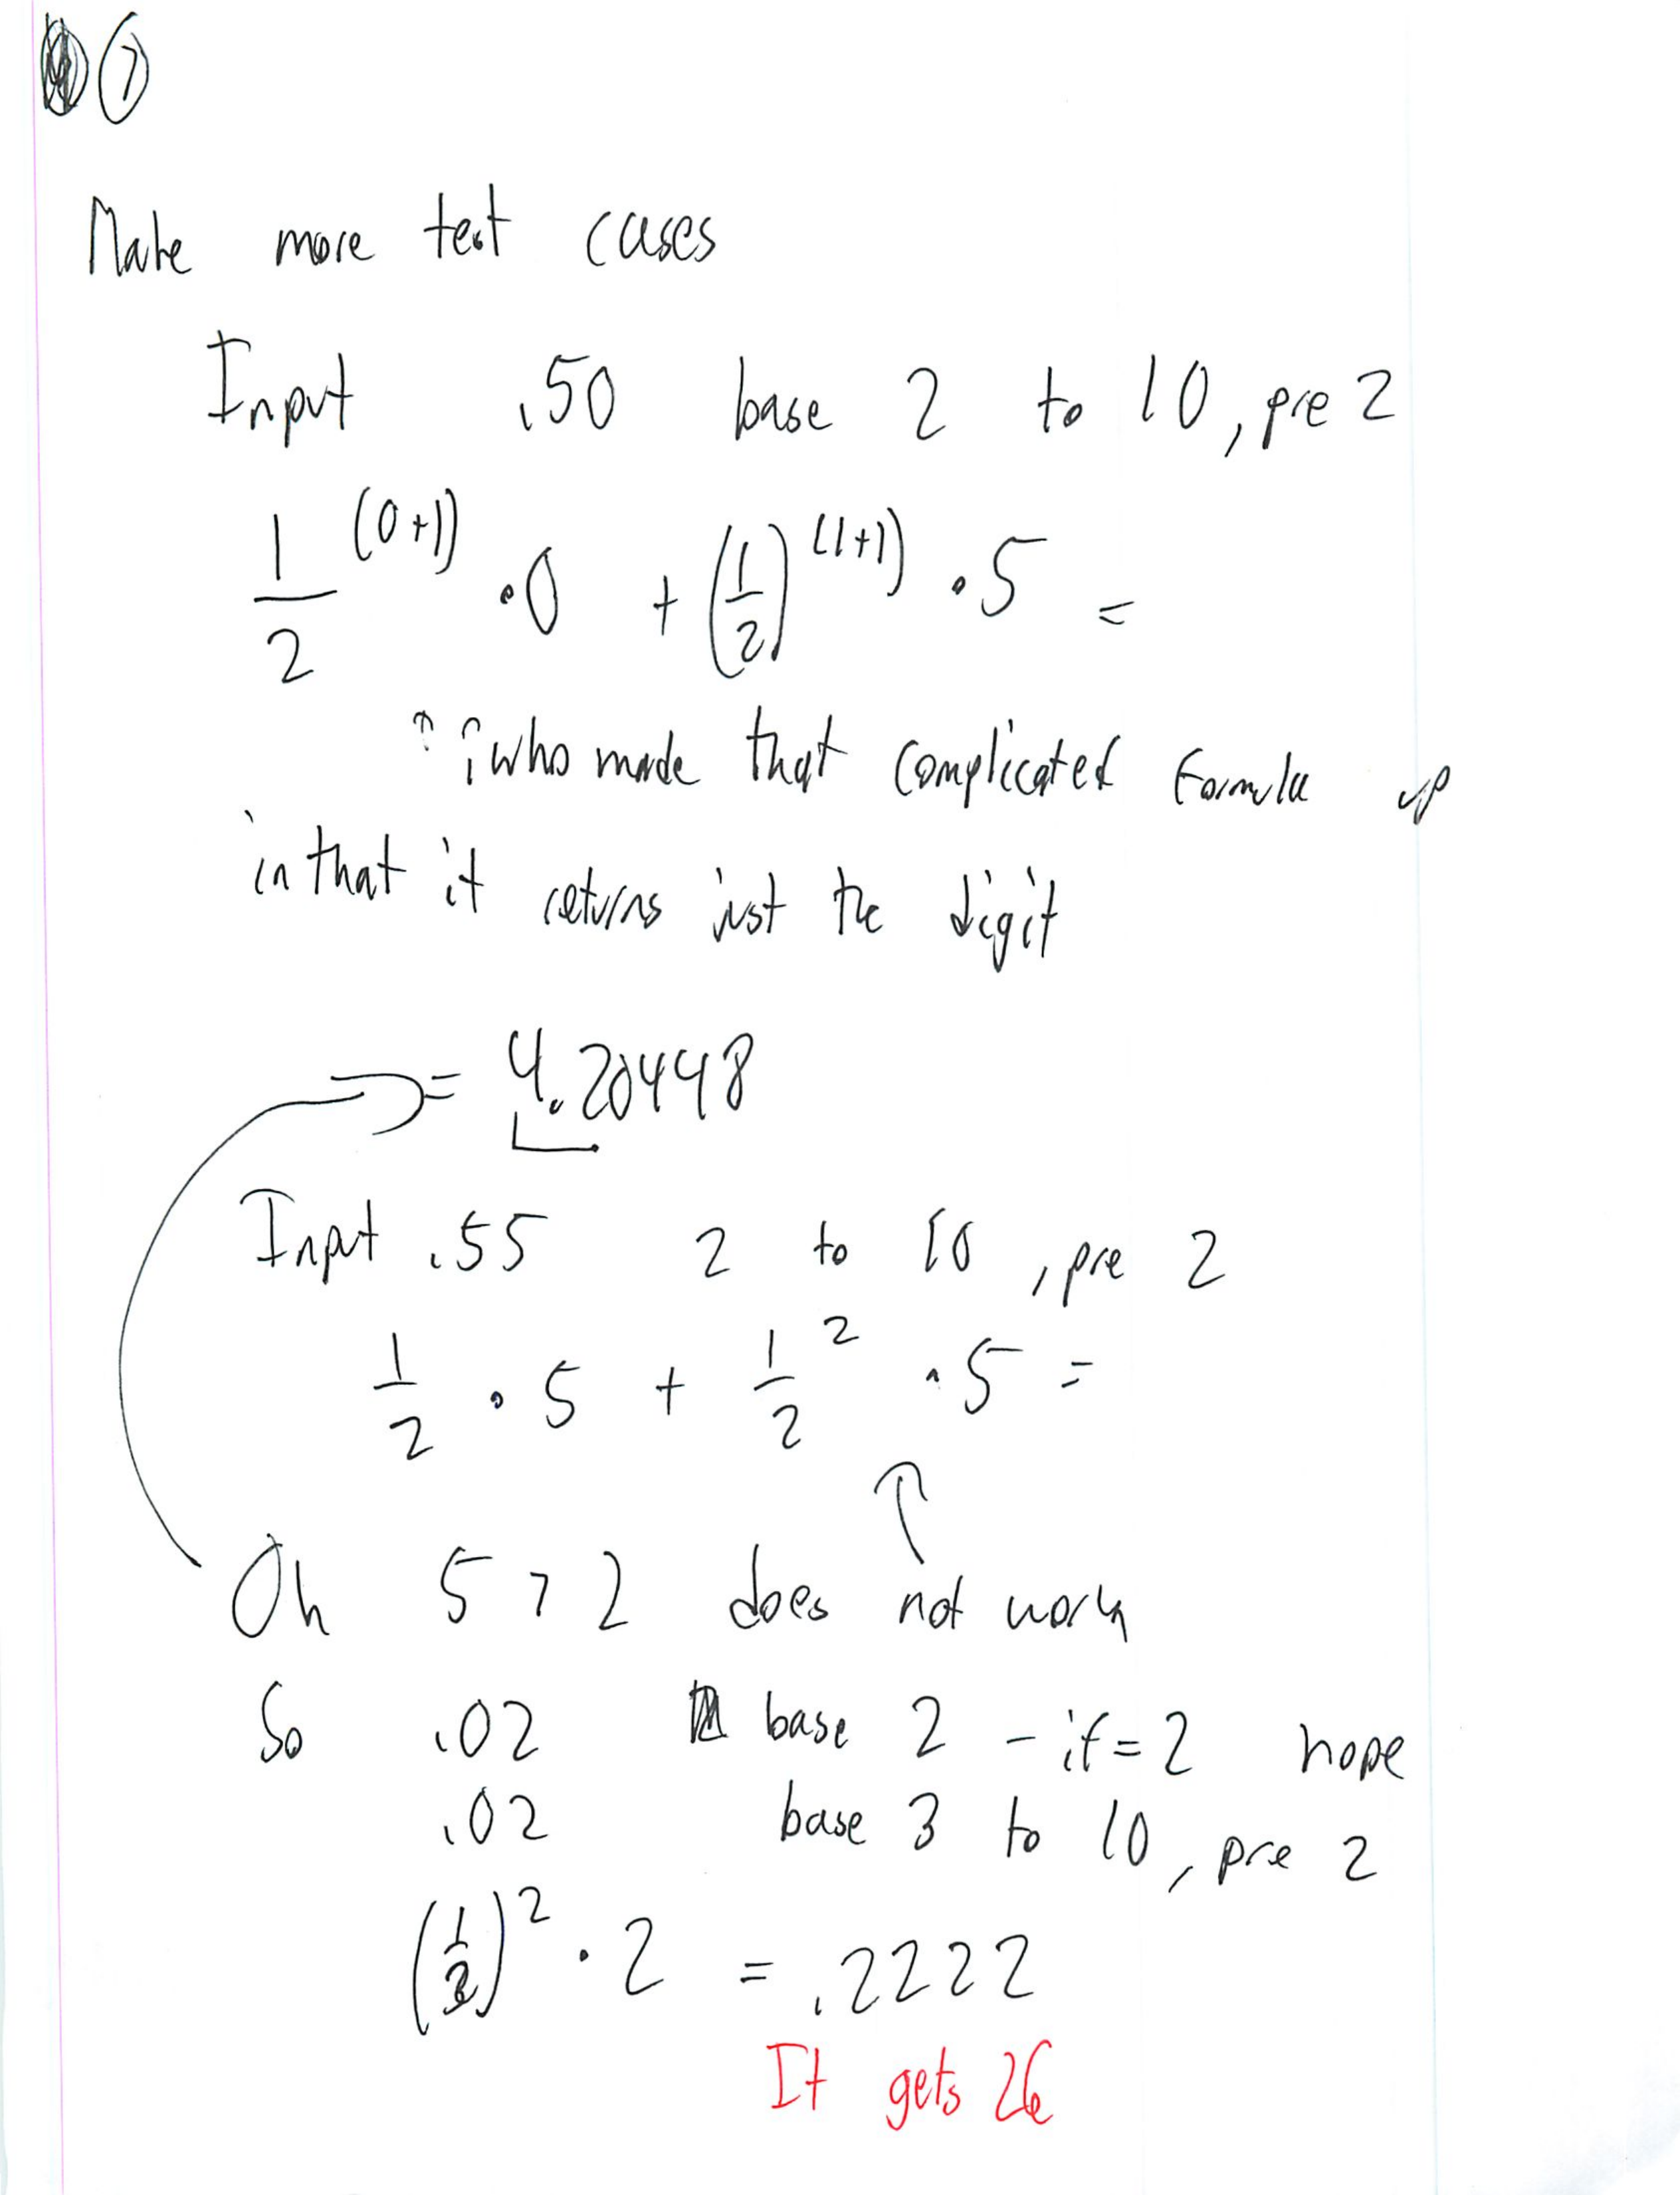 7
Make more test cases
Input .50 base 2 to 10, pre 2
1/2 ^(0+1) · 0 + (1/2)^(1+1) · 5 =
↑ ¡who made that complicated formula up
in that it returns just the digit
= 4.20448
Input .55 2 to 10, pre 2
1/2 · 5 + 1/2 ^2 · 5 =
Oh 5 > 2 does not work
So .02 base 2 - if = 2 nope
.02 base 3 to 10, pre 2
(1/3)^2 · 2 = .2222
It gets 26